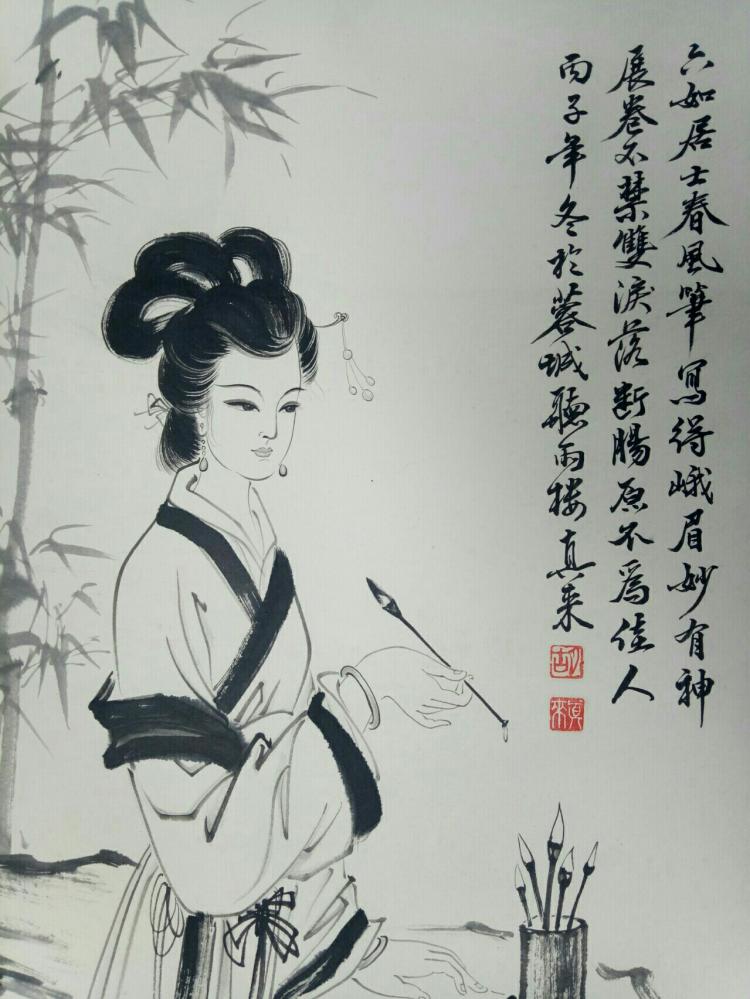 六如居士春風筆寫得峨眉妙有神
展卷不禁雙淚落斷腸原不爲佳人
丙子年冬於蓉城聽雨楼真来
胡
真來